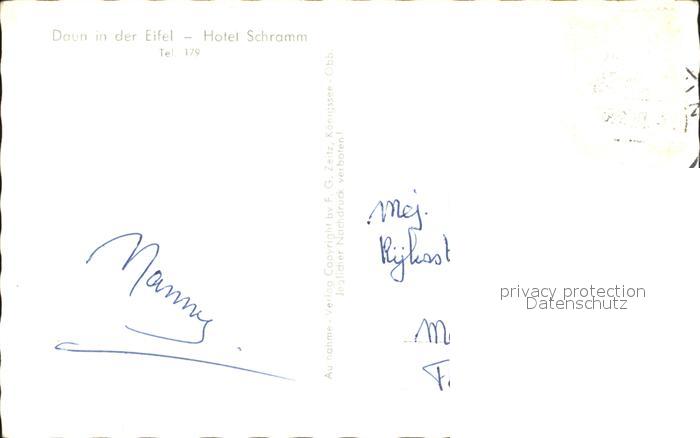 Daun in der Eifel – Hotel Schramm
Tel. 179
Aufnahme - Verlag Copyright by F. G. Zeitz, Königssee - Obb.
Jeglicher Nachdruck verboten!
Mej.
Rijksst
privacy protection
Datenschutz
Nanny
M
F